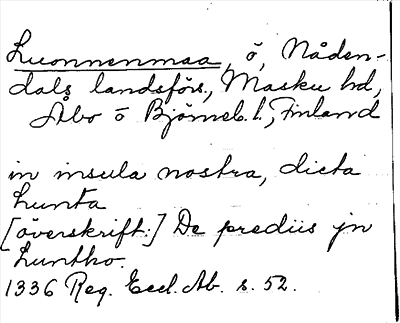 Luonnenmaa, ö, Nåden-
dals landsförs., Masku hd,
Åbo o Björneb. l., Finland
in insula nostra, dicta
Lunta
[överskrift:] De prediis jn
Luntho.
1336 Reg. Eccl. Ab. s. 52.